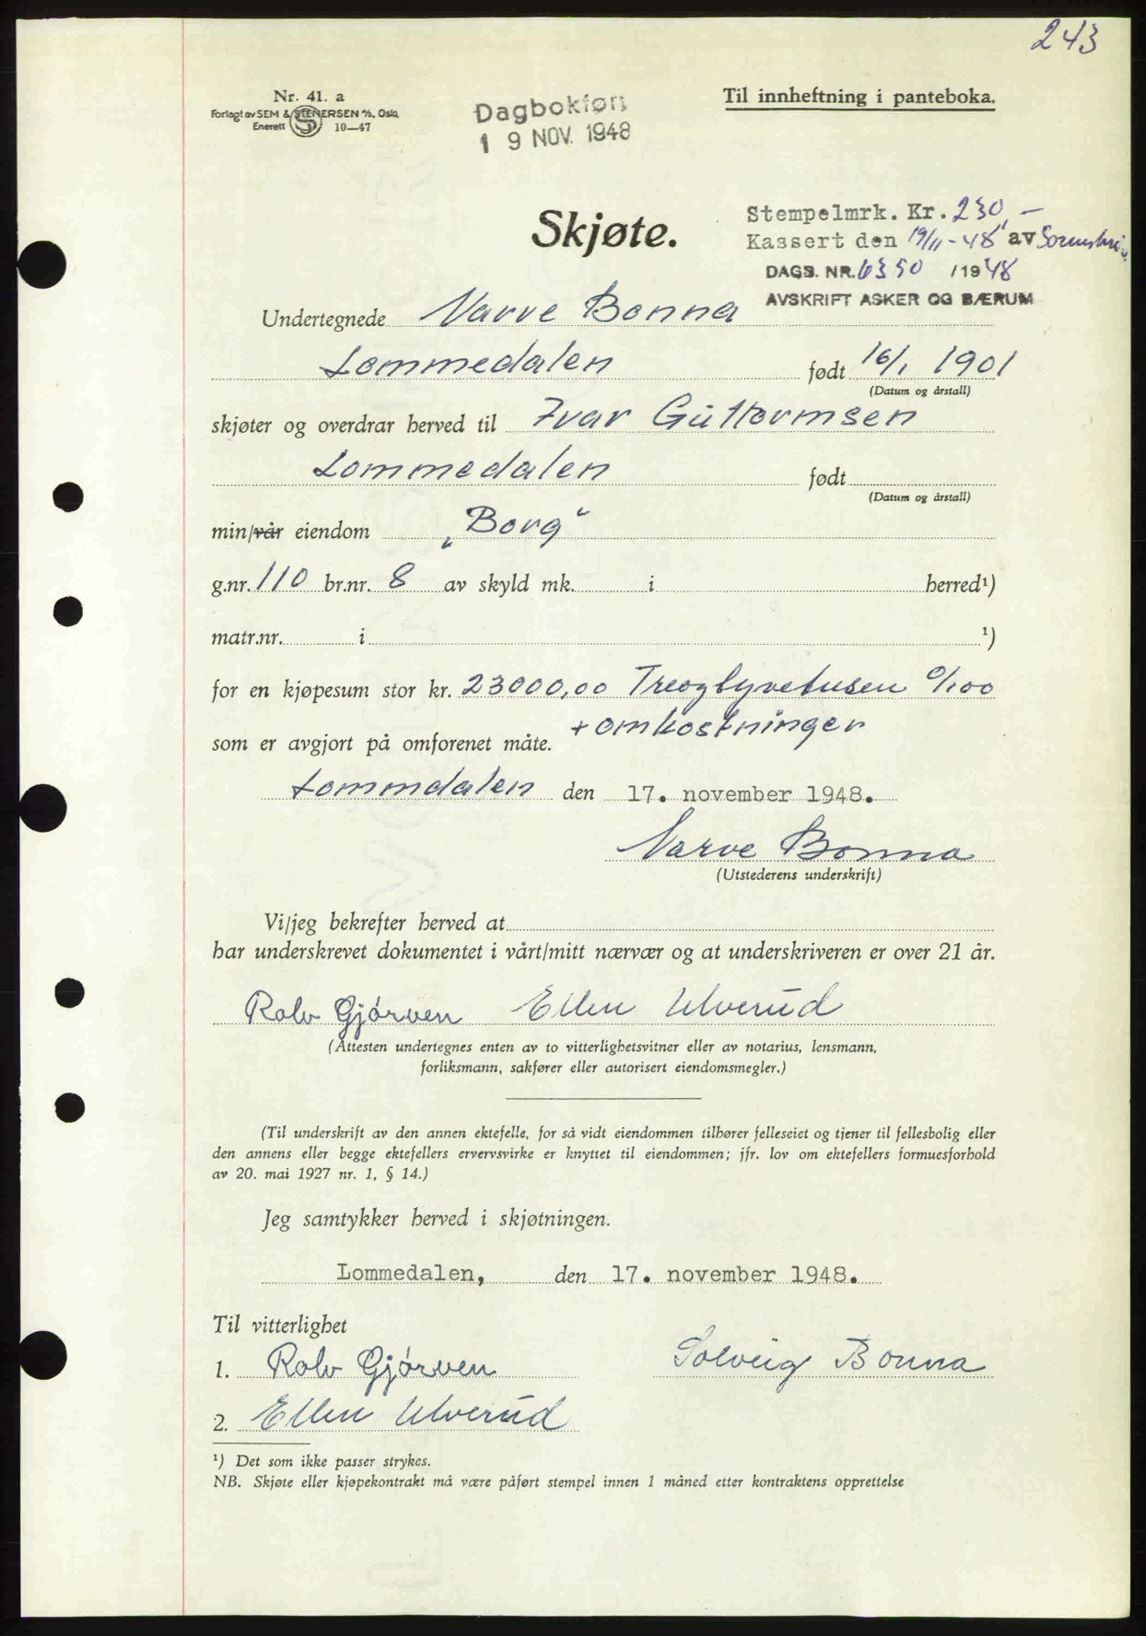 243
Nr. 41. a
Forlagt av SEM & STENERSEN A/S, Oslo
Enerett 10—47
Dagbokført
19 NOV. 1948
Til innheftning i panteboka.
Skjøte.
Stempelmrk. Kr. 230,-
Kassert den 19/11-48 av
DAGB. NR. 6350 /1948
AVSKRIFT ASKER OG BÆRUM
Undertegnede Narve Bonna
Lommedalen født 16/1 1901
(Datum og årstall)
skjøter og overdrar herved til Ivar Guttormsen
Lommedalen født
(Datum og årstall)
min/vår eiendom „Borg"
g.nr. 110 br.nr. 8 av skyld mk. i herred¹)
matr.nr. i ¹)
for en kjøpesum stor kr. 23000,00 Treogtyvetusen 0/100
+ omkostninger
som er avgjort på omforenet måte.
Lommdalen den 17. november 1948.
Narve Bonna
(Utstederens underskrift)
Vi/jeg bekrefter herved at
har underskrevet dokumentet i vårt/mitt nærvær og at underskriveren er over 21 år.
Rolv Gjörven Ellen Ulverud
(Attesten undertegnes enten av to vitterlighetsvitner eller av notarius, lensmann,
forliksmann, sakfører eller autorisert eiendomsmegler.)
(Til underskrift av den annen ektefelle, for så vidt eiendommen tilhører felleseiet og tjener til fellesbolig eller
den annens eller begge ektefellers ervervsvirke er knyttet til eiendommen; jfr. lov om ektefellers formuesforhold
av 20. mai 1927 nr. 1, § 14.)
Jeg samtykker herved i skjøtningen.
Lommedalen, den 17. november 1948.
Til vitterlighet
1. Rolv Gjörven Solveig Bonna
2. Ellen Ulverud
¹) Det som ikke passer strykes.
NB. Skjøte eller kjøpekontrakt må være påført stempel innen 1 måned etter kontraktens opprettelse